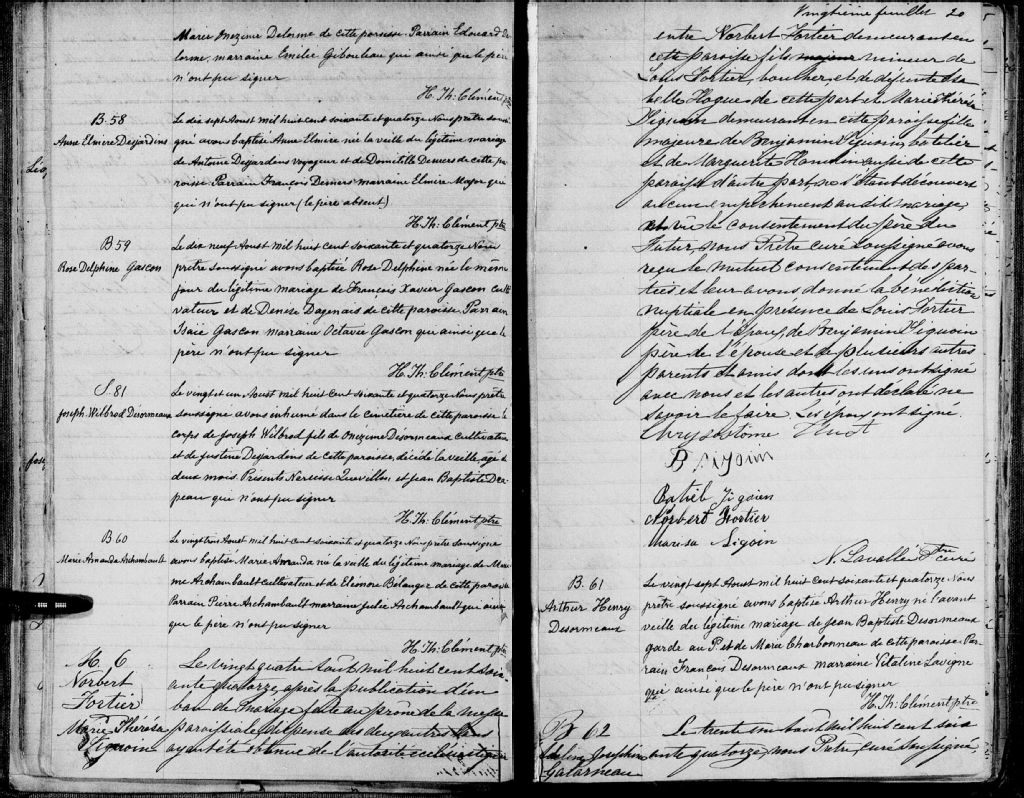 Marie Onezime Delorme de cette paroisse. Parrain Edouard De
lorme, marraine Emilie Gibouleau qui ainsi que le père
n'ont pu signer
H. Th: Clément ptre
B 58
Anne Elmire Desjardins
Le dix sept Aoust mil huit cent soixante et quatorze Nous prêtre sous
gné avons baptisé Anne Elmire née la veille du légitime mariage
de Antoine Desjardins voyageur et de Domitille Demers de cette pa
roisse. Parrain François Demers marraine Elmire Major qui
qui n'ont pu signer (le père absent)
H. Th: Clément ptre
Léo,
B 59
Rose Delphine Gascon
Le dix neuf Aoust mil huit cent soixante et quatorze Nous
prêtre soussigné avons baptisé Rose Delphine née le même
jour du légitime mariage de François Xavier Gascon culti
vateur et de Denise Dagenais de cette paroisse Parrain
Isaïe Gascon marraine Octavie Gascon qui ainsi que le
père n'ont pu signer
H. Th: Clément ptre
S. 81
Joseph Wilbrod Desormeaux
Le vingt et un Aoust mil huit cent soixante et quatorze Nous prêtre
soussigné avons inhumé dans le cimetière de cette paroisse le
corps de Joseph Wilbrod fils de Onézime Desormeaux cultivateur
et de Justine Desjardins de cette paroisse, décédé la veille, agé de
deux mois. Presents Narcisse Quevillon et Jean Baptiste De
peau qui n'ont pu signer
H. Th: Clément ptre
B 60
Marie Amanda Archambault
Le vingt trois Aoust mil huit cent soixante et quatorze Nous prêtre soussigné
avons baptisé Marie Amanda né la veille du légitime mariage de
me Archambault cultivateur et de Elénore Bélanger de cette paroisse
Parrain Pierre Archambault marraine Julie Archambault qui ainsi
que le père n'ont pu signer
H. Th: Clément ptre
M. 6
Norbert
Fortier
Marie Thérésa
Piquoin
Le vingt quatre août mil huit cent soix
ante quatorze, après la publication d'un
ban de mariage faite au prône de la messe
paroissiale, dispense des deux autres bans
ayant été obtenue de l'autorité ecclésiastique
Vingtième feuillet 20
entre Norbert Fortier demeurant en
cette paroisse fils majeur mineur de
Louis Fortier, boucher, et de défunte Isa
belle Hogue de cette part et Marie Thérésa
Piquoin demeurant en cette paroisse fille
majeure de Benjamin Piquoin, batelier
et de Marguerite aussi de cette
paroisse d'autre part, ne s'étant découvert
aucun empêchement au dit mariage,
et vu le consentement du père du
futur, nous Prêtre curé soussigné avons
reçu le mutuel consentement des par
ties et leur avons donné la bénédiction
nuptiale en présence de Louis Fortier
père de l'époux, de Benjamin Piquoin
père de l'épouse et de plusieurs autres
parents et amis dont les uns ont signé
avec nous et les autres ont déclaré ne
savoir le faire. Les époux ont signé.
Chrysostome
Norbert Fortier
N. Lavallée Ptre curé
B. 61
Arthur Henry
Desormeaux
Le vingt sept Aoust mil huit cent soixante et quatorze Nous
prêtre soussigné avons baptisé Arthur Henry né l'avant
veille du légitime mariage de Jean Baptiste Desormeaux
garde au P. et de Marie Charbonneau de cette paroisse. Par
rain François Desormeaux marraine Vitaline Lavigne
qui ainsi que le père n'ont pu signer
H. Th: Clément ptre
B 62
Joséphine
Galarneau
Le trente un août mil huit cent soix
ante quatorze, nous Prêtre, curé soussigné,